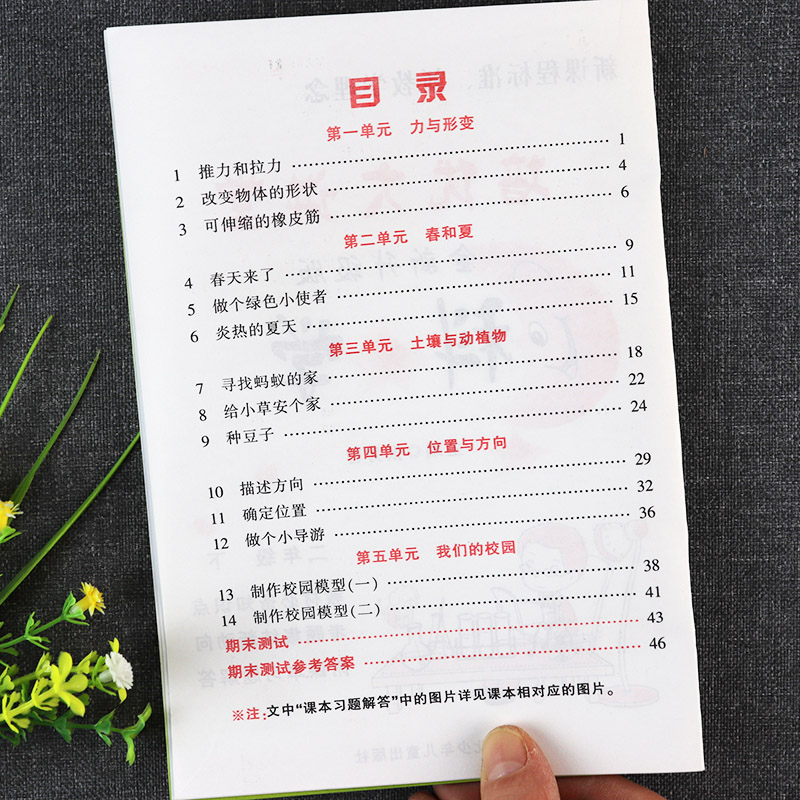 目录
第一单元 力与形变
1 推力和拉力 1
2 改变物体的形状 4
3 可伸缩的橡皮筋 6
第二单元 春和夏
4 春天来了 9
5 做个绿色小使者 11
6 炎热的夏天 15
第三单元 土壤与动植物
7 寻找蚂蚁的家 18
8 给小草安个家 22
9 种豆子 24
第四单元 位置与方向
10 描述方向 29
11 确定位置 32
12 做个小导游 36
第五单元 我们的校园
13 制作校园模型(一) 38
14 制作校园模型(二) 41
期末测试 43
期末测试参考答案 46
※注:文中“课本习题解答”中的图片详见课本相对应的图片。